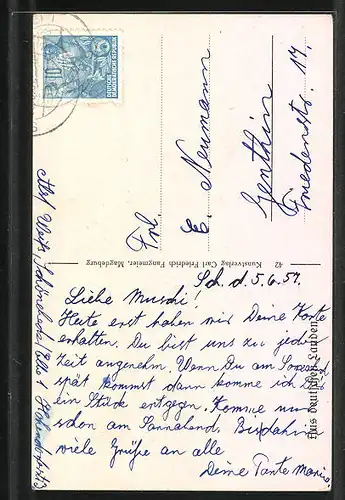 Sch. d. 5.6.57.
Liebe Muschi!
Heute erst haben wir Deine Karte
erhalten. Du bist uns zu jeder
Zeit angenehm. Wenn Du am Sonnabend
spät kommst dann komme ich Dir
ein Stück entgegen. Komme nur
schon am Sonnabend. Bis dahin
viele Grüße an alle
Deine Tante
Frl.
E. Neumann
Genthin
Friedenstr. 17.
Schönebeck/Elbe
42 Kunstverlag Carl Friedrich Fangmeier, Magdeburg
Aus deutschen Landen
DEUTSCHE
DEMOKRATISCHE REPUBLIK
10